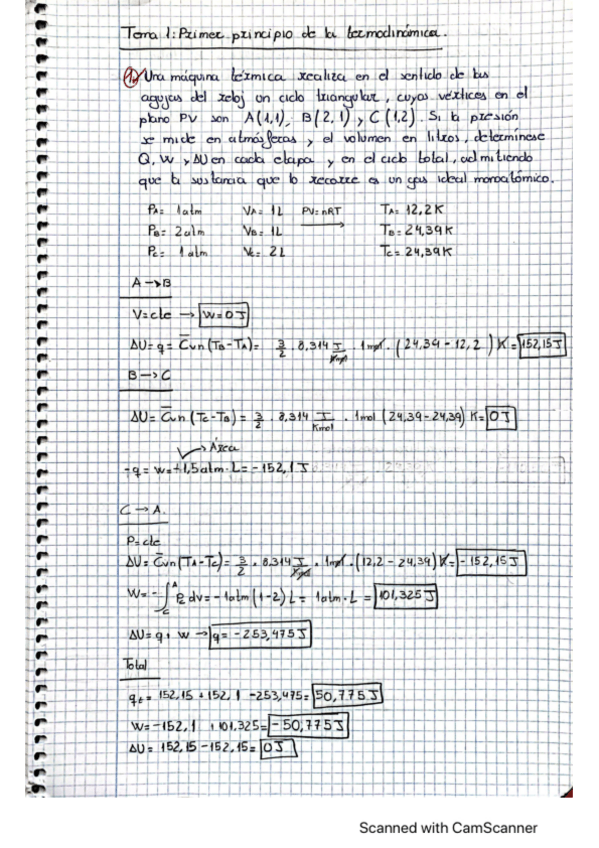 Tema 1: Primer principio de la termodinámica.
1. Una máquina térmica realiza en el sentido de las
agujas del reloj un ciclo triangular, cuyos vértices en el
plano PV son A(1,1), B(2,1) y C(1,2). Si la presión
se mide en atmósferas y el volumen en litros, determínese
Q, W y ΔU en cada etapa y en el ciclo total, admitiendo
que la sustancia que lo recorre es un gas ideal monoatómico.
PA= 1atm VA= 1L PV=nRT TA= 12,2K
PB= 2atm VB= 1L TB= 24,39K
Pc= 1atm Vc= 2L Tc= 24,39K
A→B
V=cte → W=0J
ΔU=q= C̅vn(TB-TA)= 3/2 · 8,314 J/Kmol · 1mol · (24,39-12,2)K= 152,15J
B→C
ΔU= C̅vn(Tc-TB)= 3/2 · 8,314 J/Kmol · 1mol (24,39-24,39)K= 0J
Área
-q=w=+1,5atm·L=-152,1J
C→A
P=cte
ΔU= C̅vn(TA-Tc)= 3/2 · 8,314 J/Kmol · 1mol·(12,2-24,39)K= -152,15J
W= -∫_C^A Pc dv= -1atm(1-2)L= 1atm·L= 101,325J
ΔU= q+w → q= -253,475J
Total
qt= 152,15+152,1-253,475= 50,775J
W= -152,1+101,325= -50,775J
ΔU= 152,15-152,15= 0J
Scanned with CamScanner